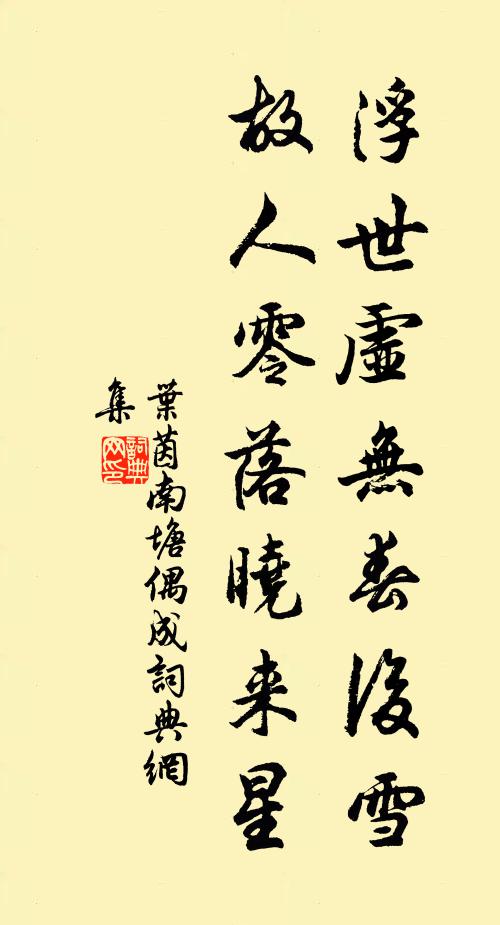 浮世虛無春後雪
故人零落曉来星
葉茵南塘偶成詞典網
集
詞典网印